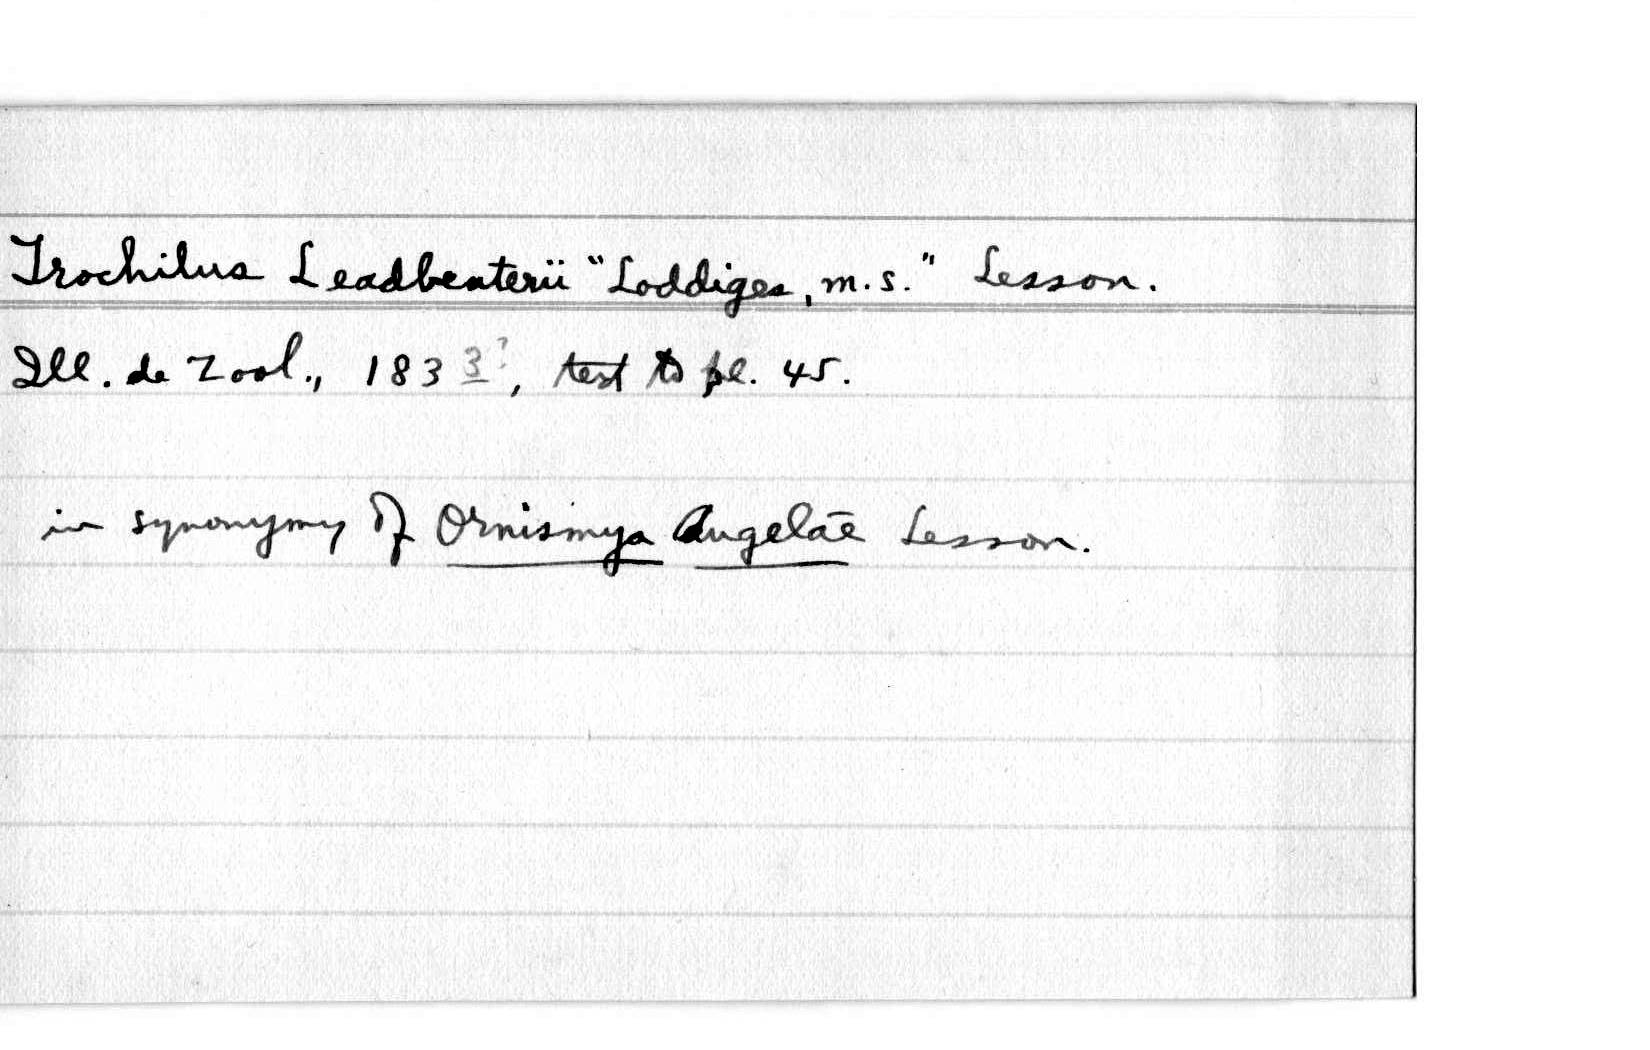 Trochilus Leadbeaterii "Loddiges, m.s." Lesson.
Ill. de Zool., 183 3?, text to pl. 45.
in synonymy of Ornismya Augelae Lesson.